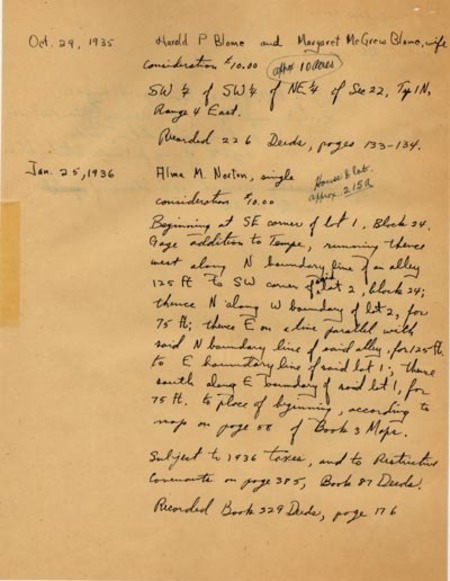 Oct. 29, 1935 Harold P Blome and Margaret McGrew Blome, wife
consideration $10.00 appx 10 acres
SW ¼ of SW ¼ of NE ¼ of Sec 22, Tp 1N,
Range 4 East.
Recorded 226 Deeds, pages 133-134.
Jan. 25, 1936 Alma M. Norton, single
House & lot.
consideration $10.00 approx .215a
Beginning at SE corner of lot 1, Block 24,
Gage addition to Tempe, running thence
west along N boundary line of an alley
125 ft to SW corner of said lot 2, block 24;
thence N along W boundary of lot 2, for
75 ft; thence E on a line parallel with
said N boundary line of said alley, for 125 ft.
to E boundary line of said lot 1; thence
south along E boundary of said lot 1, for
75 ft. to place of beginning, according to
map on page 58 of Book 3 Maps.
Subject to 1936 taxes, and to Restrictive
Covenants on page 385, Book 87 Deeds.
Recorded Book 229 Deeds, page 176